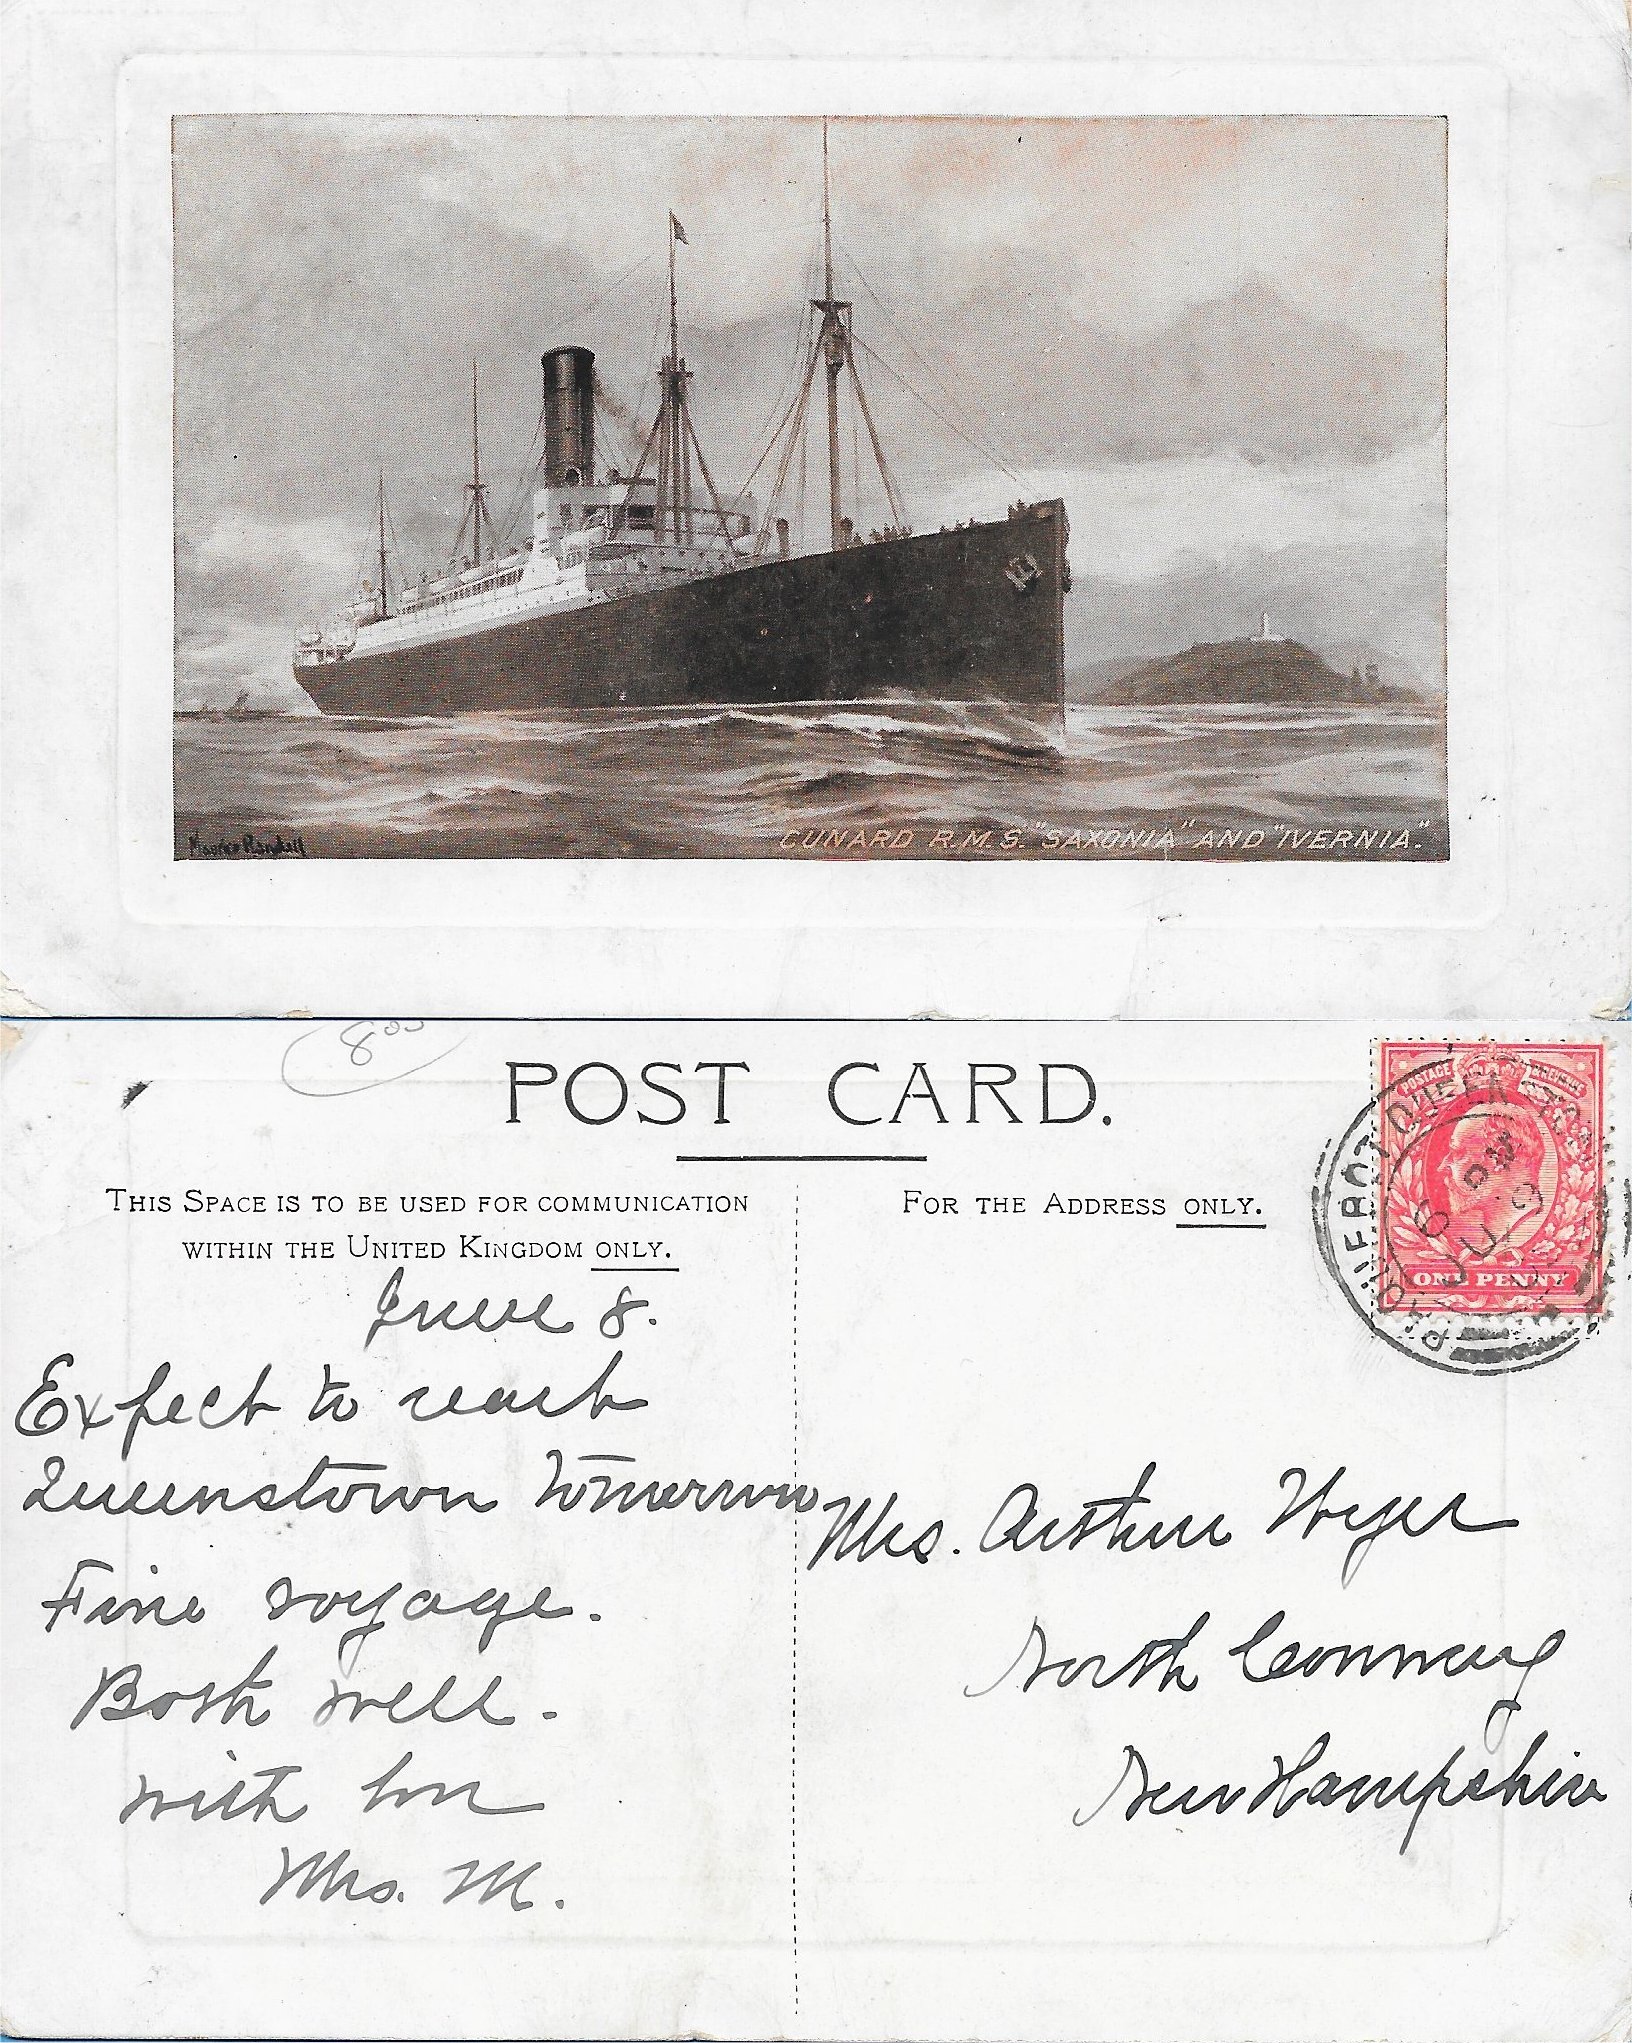 Maurice Randall
CUNARD R.M.S. "SAXONIA" AND "IVERNIA."
8 00
POST CARD.
THIS SPACE IS TO BE USED FOR COMMUNICATION
WITHIN THE UNITED KINGDOM ONLY.
FOR THE ADDRESS ONLY.
POSTAGE
ONE PENNY
PAQUEBOT QUEENSTOWN
6 PM
JU 9
June 8.
Expect to reach
Queenstown tomorrow
Fine voyage.
Both well.
With love
Mrs. M.
Mrs. Arthur
North Conway
New Hampshire